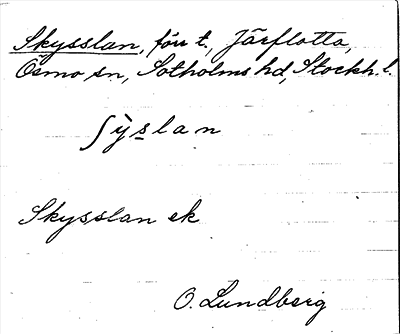 Skysslan, förr t., Järflotta,
Ösmo sn, Sotholms hd, Stockh. l.
ʃỳslan
Skysslan ek
O. Lundberg